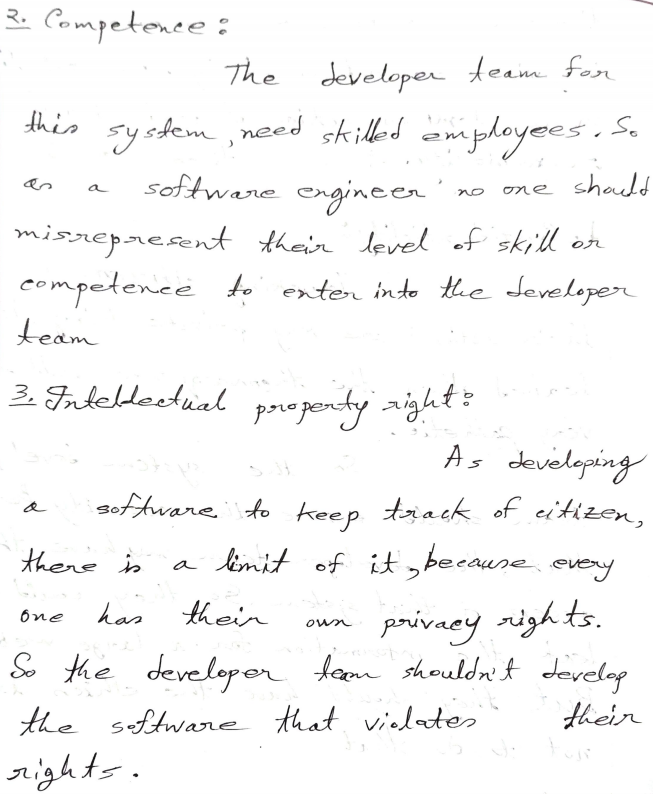 2. Competence :
The developer team for
this system, need skilled employees. So
as a software engineer no one should
misrepresent their level of skill or
competence to enter into the developer
team
3. Inteldectual property right :
As developing
a software to keep track of citizen,
there is a limit of it, because every
one has their own privacy rights.
So the developer team shouldn't develop
the software that violates their
rights.